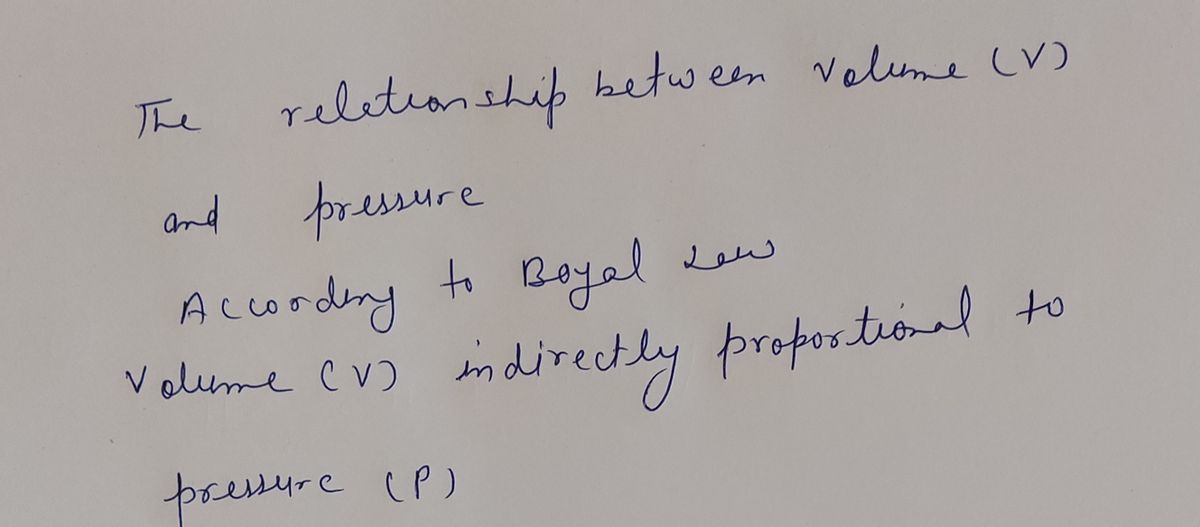 The relationship between volume (V)
and pressure
According to Boyal Law
Volume (V) indirectly proportional to
pressure (P)